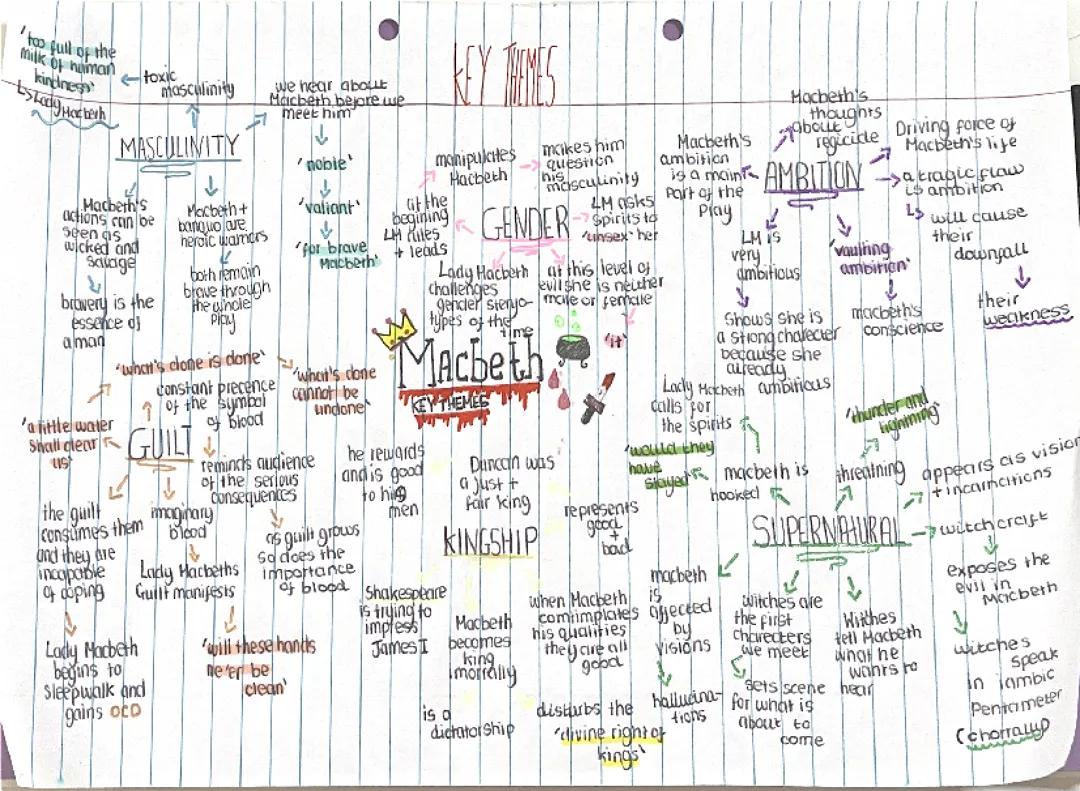 KEY THEMES
'too full of the
milk of human
kindness'
↳ Lady Macbeth
toxic
masculinity
MASCULINITY
we hear about
Macbeth before we
meet him
'noble'
'valiant'
'for brave
Macbeth'
Macbeth's
actions can be
seen as
wicked and
savage
bravery is the
essence of
a man
Macbeth +
banquo are
heroic warriors
both remain
brave through
the whole
play
manipulates
Macbeth
makes him
question
his
masculinity
GENDER
at the
begining
LM rules
+ leads
LM asks
spirits to
'unsex' her
Lady Macbeth
challenges
gender steryo-
types of the
time
at this level of
evil she is neither
male or female
'it'
Macbeth's
ambition
is a main
part of the
play
Macbeth's
thoughts
about
regicide
AMBITION
Driving force of
Macbeth's life
a tragic flaw
is ambition
↳ will cause
their
downfall
their
weakness
LM is
very
ambitious
Shows she is
a strong charecter
because she
already
ambitious
'vaulting
ambition'
macbeth's
conscience
Macbeth
KEY THEMES
'what's done is done'
'what's done
cannot be
undone'
constant precence
of the symbol
of blood
'a little water
Shall clear
us'
GUILT
reminds audience
of the serious
consequences
as guilt grows
so does the
importance
of blood
the guilt
consumes them
and they are
incapable
of coping
Lady Macbeth
begins to
sleepwalk and
gains OCD
imaginary
blood
Lady Macbeths
Guilt manifests
'will these hands
ne'er be
clean'
he rewards
and is good
to his
men
Duncan was
a just +
fair king
represents
good
+
bad
KINGSHIP
Shakespeare
is trying to
impress
James I
Macbeth
becomes
king
imorrally
is a
dictatorship
when Macbeth
comtimplates
his qualities
they are all
good
disturbs the
'divine right of
kings'
Lady Macbeth
calls for
the spirits
'would they
have
stayed'
macbeth is
hooked
'thunder and
lightning'
threatning
appears as vision
+ incarnations
SUPERNATURAL
witchcraft
exposes the
evil in
Macbeth
witches
speak
in iambic
Pentrameter
(chorrally)
macbeth
is
affected
by
visions
hallucina-
tions
witches are
the first
charecters
we meet
sets scene
for what is
about to
come
Witches
tell Macbeth
what he
wants to
hear